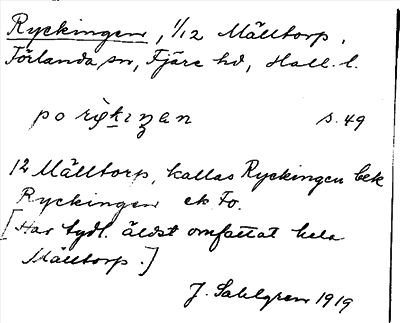 Ryckingen, 1/12 Mälltorp,
Förlanda sn, Fjäre hd, Hall. l.
po s. 49
12 Mälltorp, kallas Ryckingen bek
Ryckingen ek Fo.
[Har tydl. äldst omfattat hela
Mälltorp.]
J. Sahlgren 1919